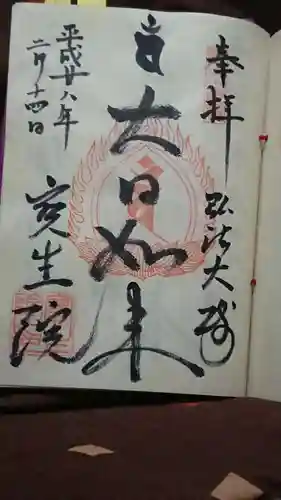 奉拝
弘法大師
大日如来
平成廿八年
二月十四日
寶生院